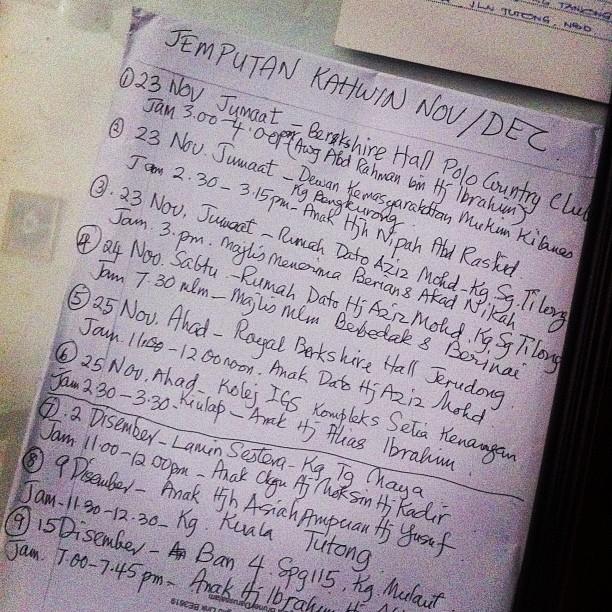 TANJONG
JLN TUTONG. NBD
JEMPUTAN KAHWIN NOV/DEC
① 23 Nov Jumaat - Berkshire Hall Polo Country Club
Jam 3.00 - 4.00pm (Awg Abd Rahman bin Hj Ibrahim)
② 23 Nov. Jumaat - Dewan Kemasyarakatan Mukim Kilanas
Kg Bengkurong.
Jam 2.30 - 3.15pm - Anak Hjh Nipah Abd Rashid.
③. 23 Nov. Jumaat - Rumah Dato Aziz Mohd - Kg. Sg. Tilong
Jam. 3.pm. Majlis Menerima Berian & Akad Nikah.
④ 24 Nov. Sabtu - Rumah Dato Hj Aziz Mohd. Kg. Sg Tilong
Jam 7.30 mlm - Majlis mlm Berbedak & Berinai
⑤ 25 Nov. Ahad - Royal Berkshire Hall Jerudong.
Jam. 11:00 - 12 00noon. Anak Dato Hj Aziz Mohd.
⑥ 25 Nov. Ahad - Kolej IGS Kompleks Setia Kenangan
Jam 2:30 - 3:30 - Kiulap - Anak Hj Alias Ibrahim.
⑦. 2 Disember - Lamin Sestera - Kg Tg Maya
Jam 11:00 - 12:00pm - Anak Ckgu Hj Moksin Hj Kadir
⑧ 9 Disember - Anak Hjh Asiah Ampuan Hj Yusuf
Jam - 11:30 - 12.30 - Kg. Kuala Tutong
⑨ 15 Disember - Ban 4 Spg 115. Kg Mulaut
Jam. 7.00 - 7.45pm - Anak Hj Ibrahim Hj